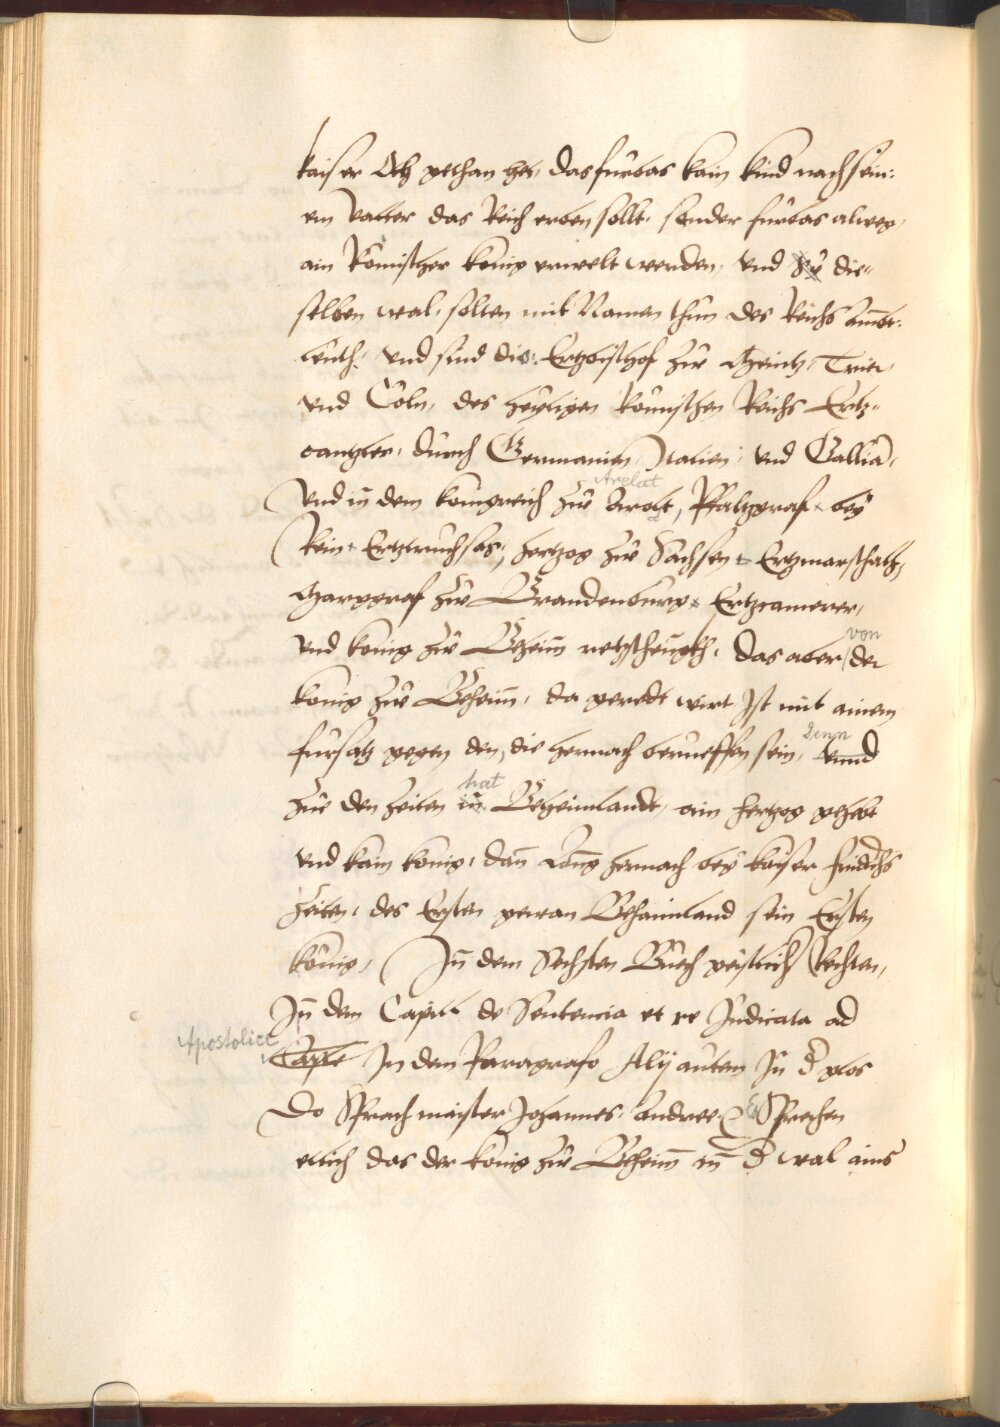 kaiser Oth gethan het, das fürbas kain kind nach sein:
em vatter das Reich erben sollt, sonder fürbas alweg,
ain Römischer konig erwelt werden, vnd die-
selben wal, solten mit Namen thun des Reichs ambt:
leuth, vnd sind die Ertzbischof zu Meintz, Trier,
vnd Cöln, des heyligen Römischen Reichs Ertz-
cantzler, durch Germanien, Italien, vnd Gallia,
Arelat
vnd in dem konigreich zu Arolt, Pfaltzgraf bey
Rein Ertztruchses, hertzog zu Sachsen Ertzmarschalh,
Marggraf zu Brandenburg Ertzcamerer,
von
vnd konig zu Beheim das aber der
konig zu Beheim, da geredt wirt Ist mit ainem
fürsatz gegen den, die hernach berueffen sein,
denn
vnnd
hat
zue den zeiten in Beheimlandt, ain hertzog gehebt
vnd kain konig, dan lang hernach bey kaiser fridrichs
zeiten, des Ersten gewan Behaimland sein Ersten
könig, In dem Sechsten Buech geistlich Rechten,
In dem Capitl de Sentencia et re Iudicata ad
Apostolice
Caple In dem Paragrafo Alij autem In d glos
Do Sprach maister Johannes Andree Es Sprechen
etlich das der konig zu Beheim in d wal ains